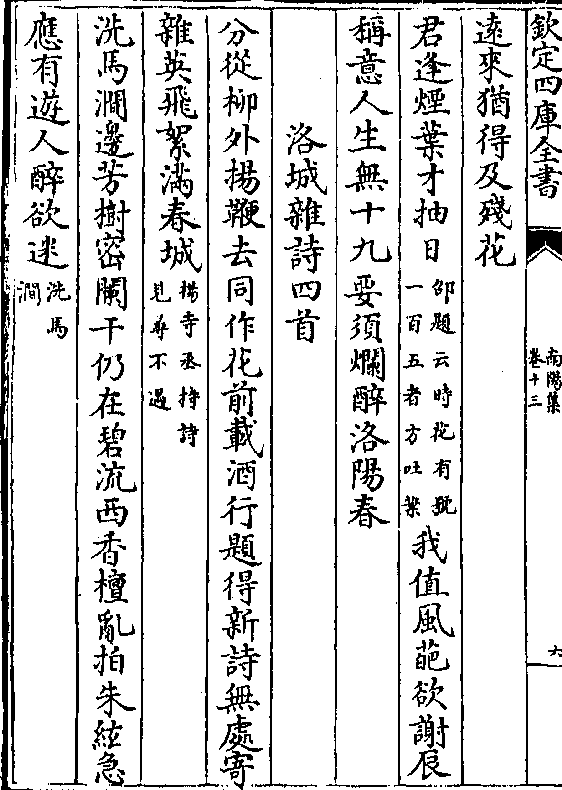 欽定四庫全書
南陽集
卷十三
六
遠來猶得及殘花
君逢煙葉才抽日
邵題云時花有號
一百五者方吐葉
我值風葩欲謝辰
稱意人生無十九要須爛醉洛陽春
洛城雜詩四首
分從柳外揚鞭去同作花前載酒行題得新詩無處寄
雜英飛絮滿春城
楊寺丞持詩
見尋不遇
洗馬澗邊芳樹密闌干仍在碧流西香檀亂拍朱絃急
應有遊人醉欲迷
洗馬
澗